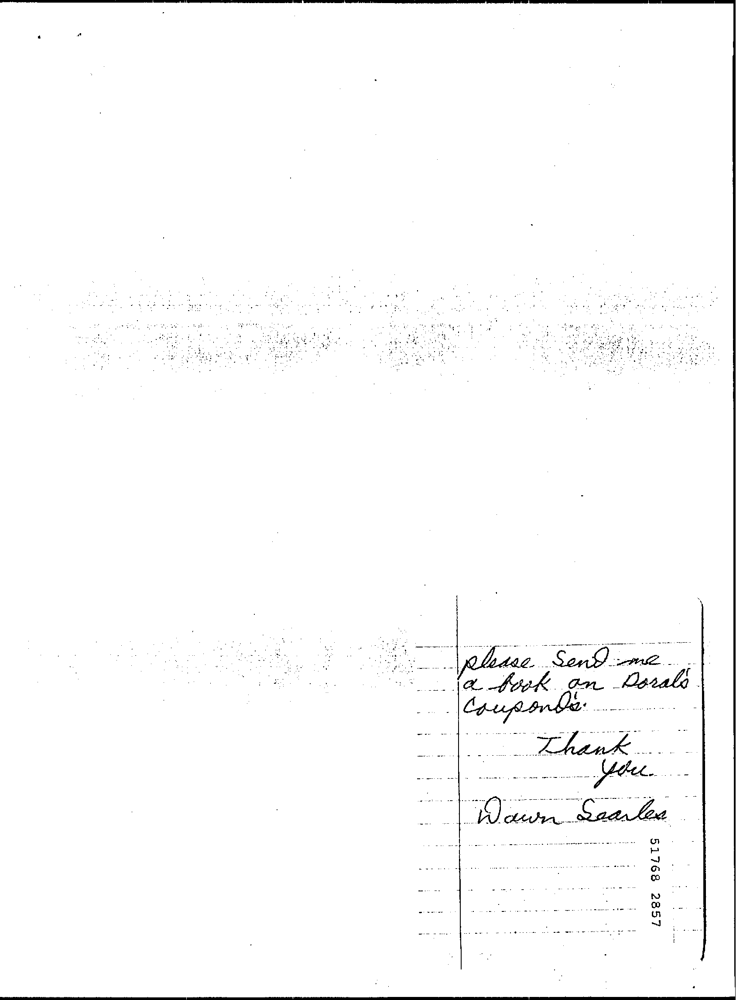 please Send me
a book on Doral's
Coupond's.
Thank
you
Dawn Searles
51768 2857